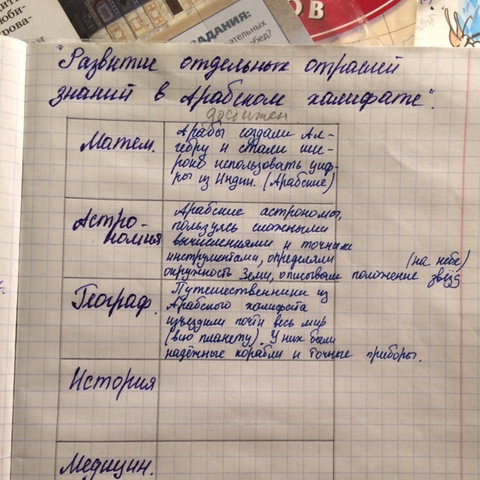 люби-
рова-
ЗАДАНИЯ:
бед?
ОВ
"Развитие отдельных отраслей
знаний в Арабском халифате".
достижен.
Матем.
Арабы создали Ал-
гебру и стали ши-
роко использовать циф-
ры из Индии. (Арабские)
Астро-
номия
Арабские астрономы,
пользуясь сложными
вычислениями и точными
инструментами, определяли (на небе)
окружность Земли, описывали положение звёзд
Географ.
Путешественники из
Арабского халифата
изъездили почти весь мир
(всю планету). У них были
надёжные корабли и точные приборы.
История
Медицин.